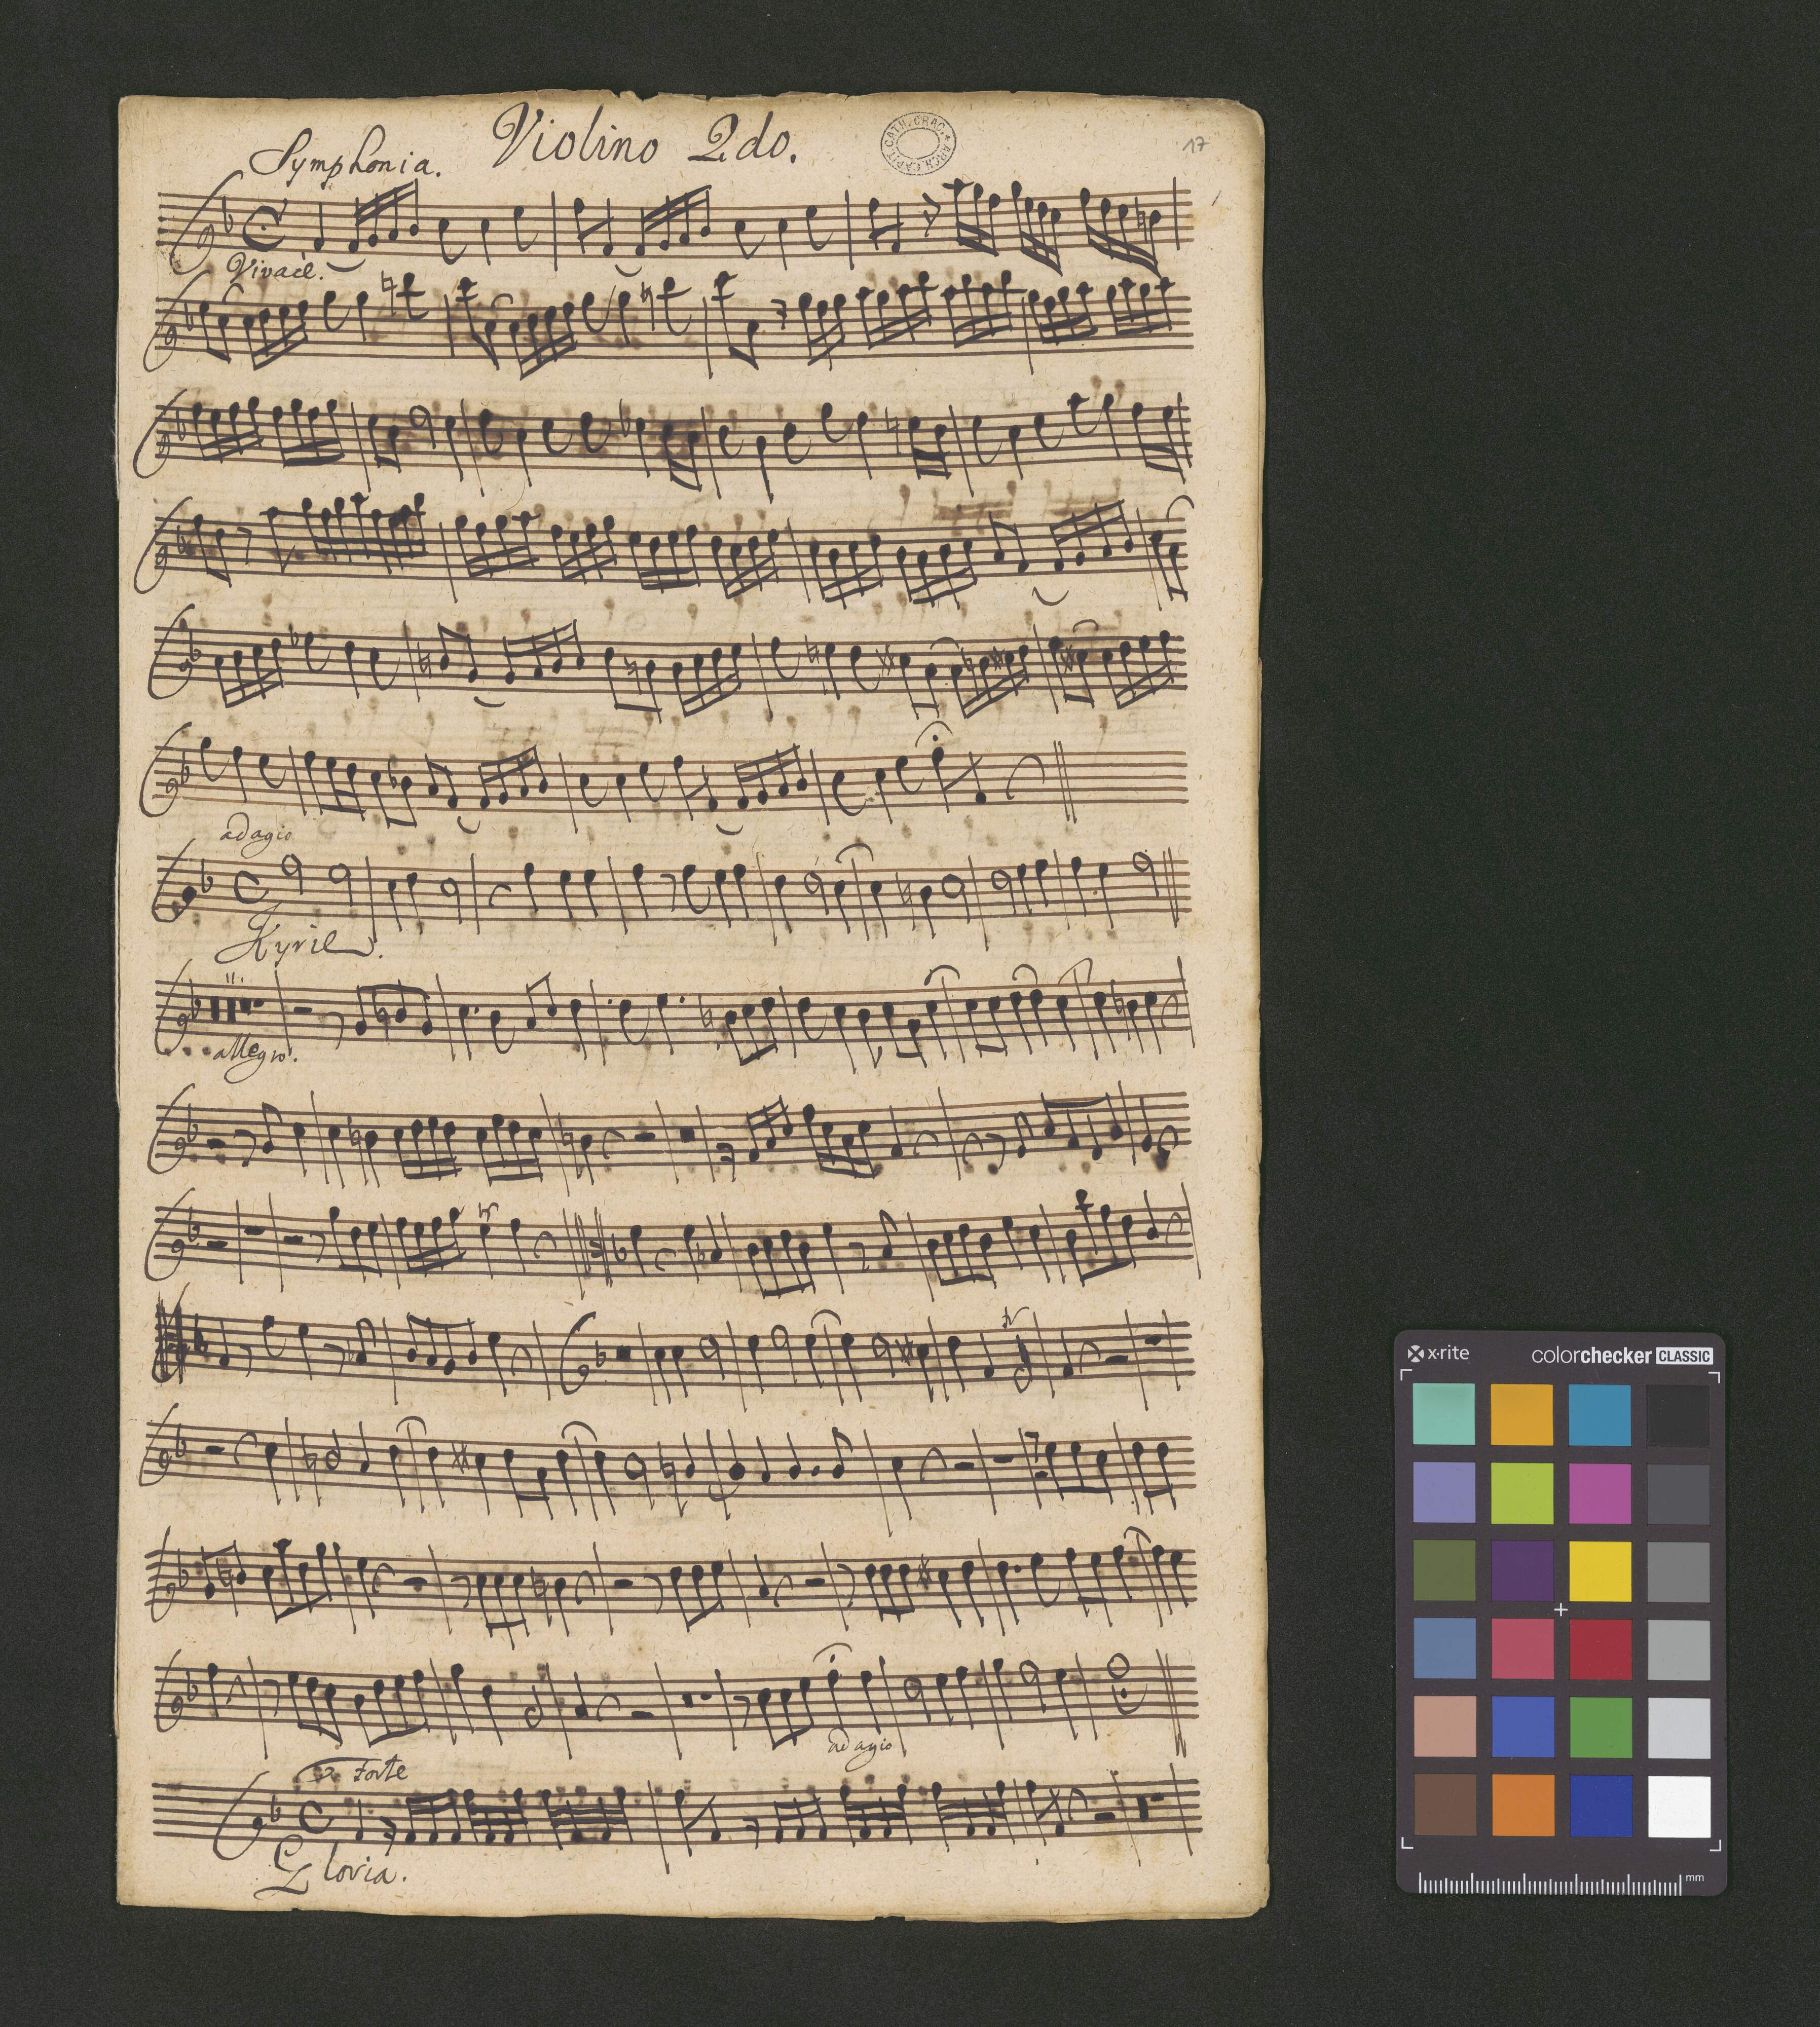 Violino 2do.
Symphonia.
ARCH. CAPIT. CATH. CRAC.
17
Vivace.
adagio
Kyrie.
allegro.
tr
adagio
Forte
Gloria.
x-rite
colorchecker CLASSIC
mm